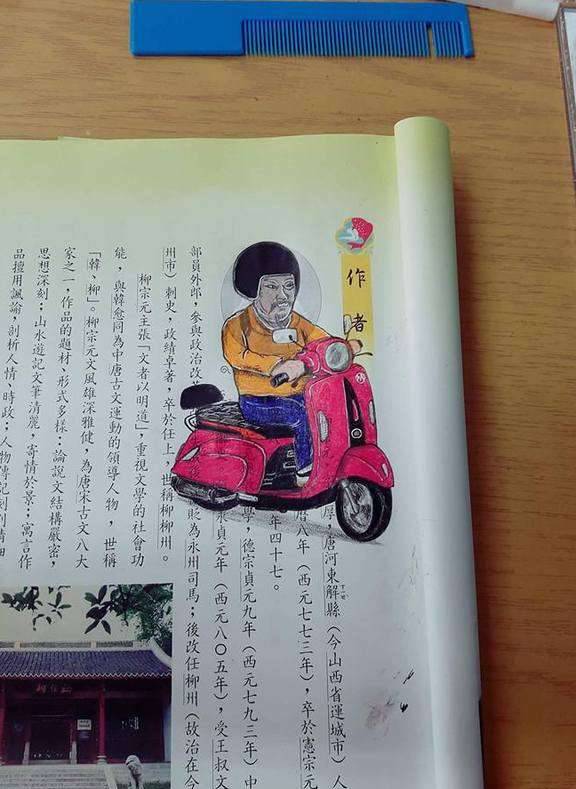 作者
厚,唐河東解縣(今山西省運城市)人
曆八年(西元七七三年),卒於憲宗元
年四十七。
學,德宗貞元九年(西元七九三年)中
永貞元年(西元八〇五年),受王叔文
部員外郎,參與政治改 貶為永州司馬;後改任柳州(故治在今
州市)刺史,政績卓著,卒於任上,世稱柳柳州。
柳宗元主張「文者以明道」,重視文學的社會功
能,與韓愈同為中唐古文運動的領導人物,世稱
「韓、柳」。柳宗元文風雄深雅健,為唐宋古文八大
家之一,作品的題材、形式多樣:論說文結構嚴密,
思想深刻;山水遊記文筆清麗,寄情於景;寓言作
品擅用諷諭,剖析人情、時政;人物傳記刻劃精細